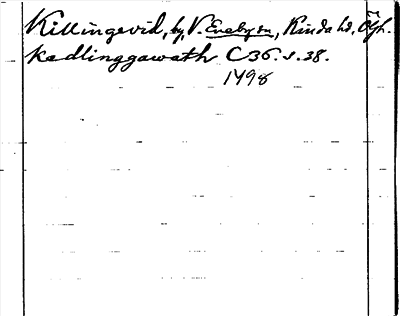 Killingevid, by, V. Eneby sn, Kinda hd, Ögl.
kædlinggawath C 36. s. 38.
1498